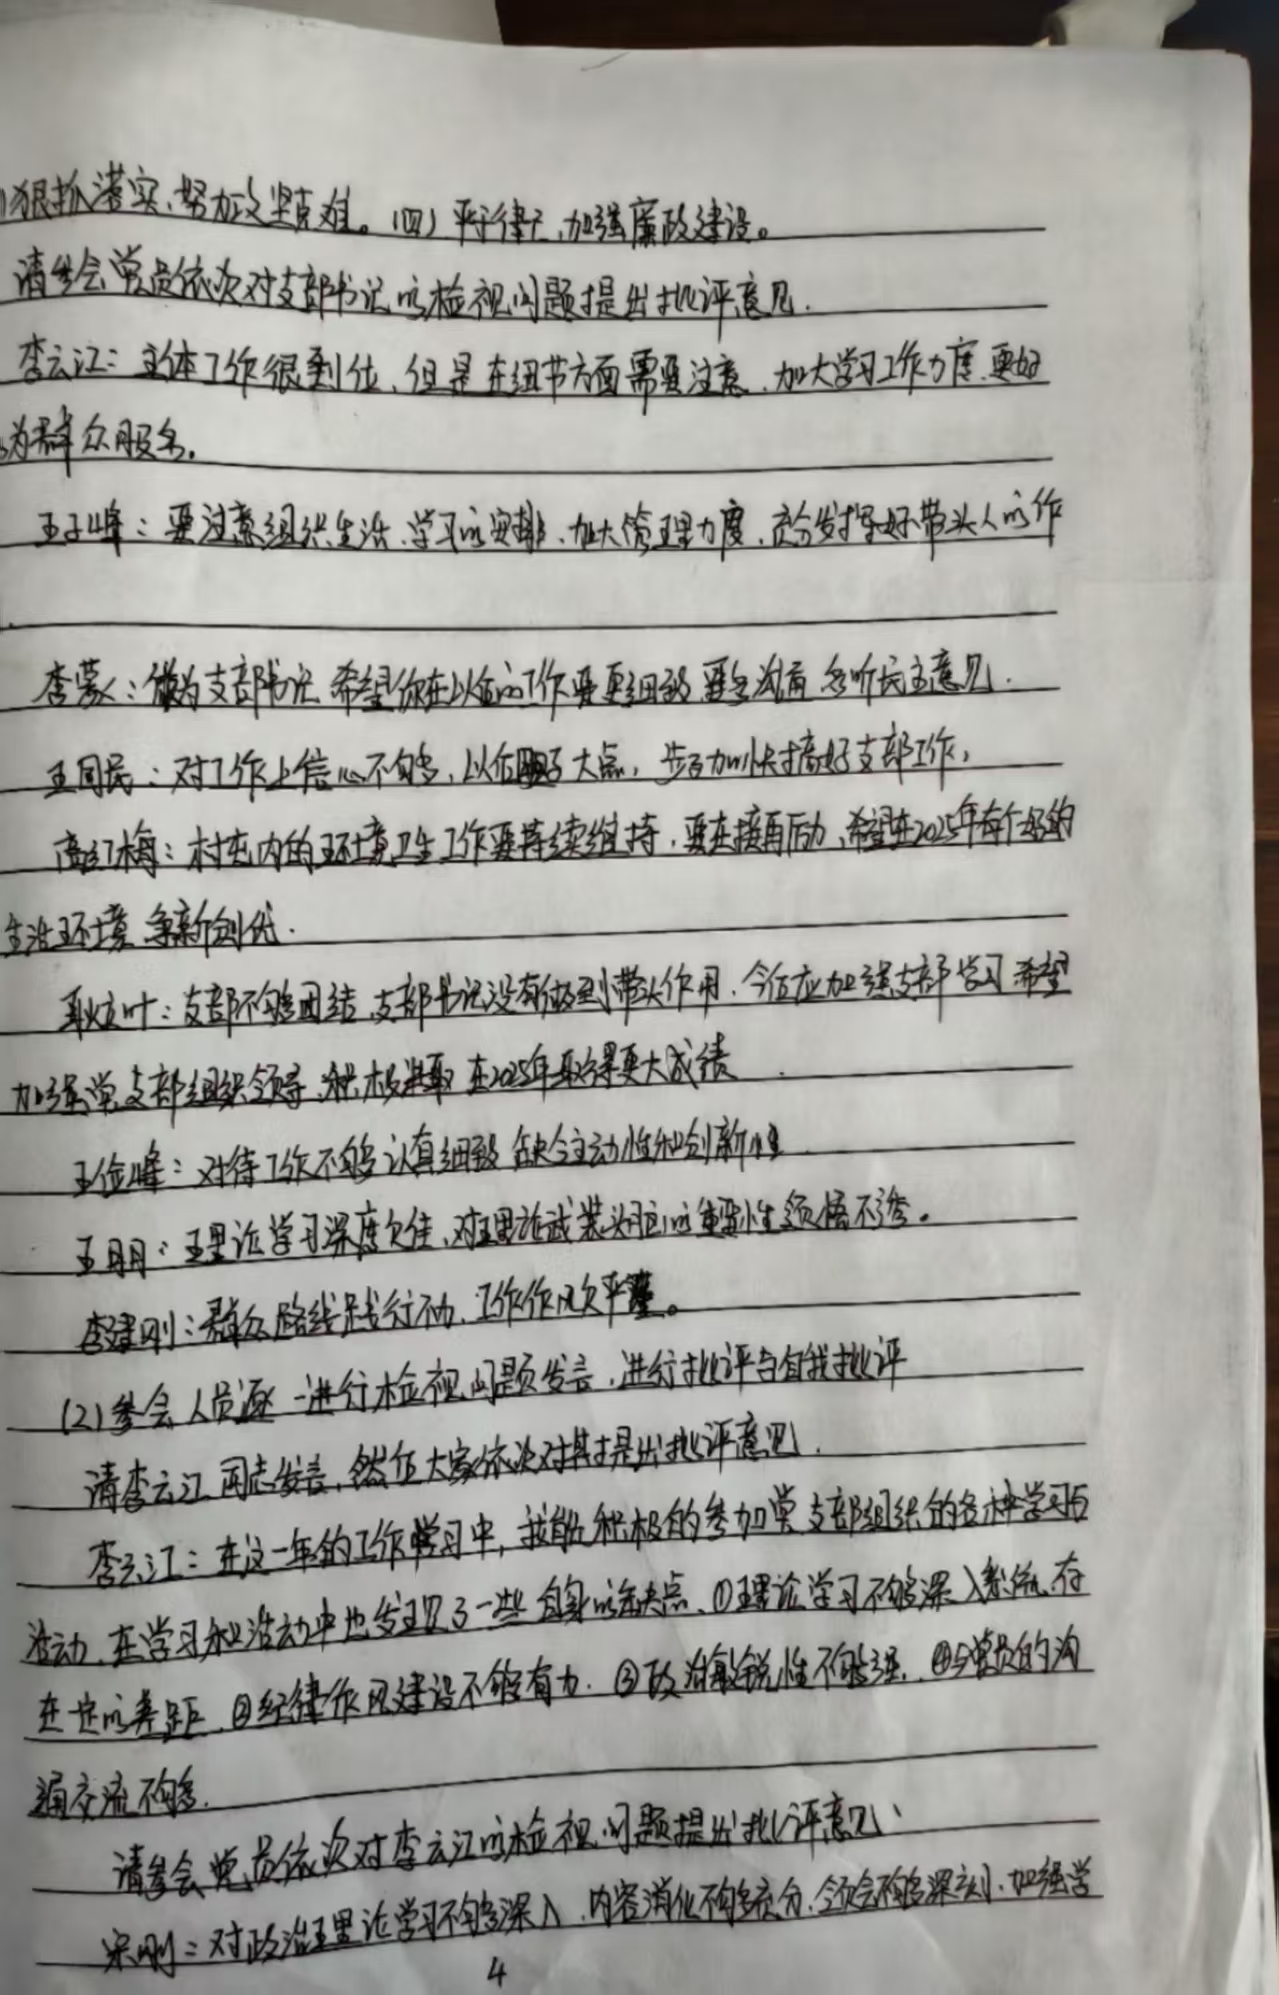 狠抓落实、努力攻坚克难。（四）严于律己，加强廉政建设。
请参会党员依次对支部书记的检视问题提出批评意见.
李云江：主体工作很到位，但是在细节方面需要注意，加大学习工作力度，更好
为群众服务。
王子峰：要注意组织生活、学习的安排、加大管理力度，充分发挥好带头人的作
李蒙：做为支部书记 希望你在以后的工作要更细致 要多沟通 多听民主意见.
王同民：对工作上信心不够，以后胆子大点，步子加快搞好支部工作，
高红梅：村屯内的环境卫生工作要持续维持，要在接再励，希望在2025年有个好的
生活环境 争新创优.
耿叶：支部不够团结 支部书记没有做到带头作用，今后应加强支部学习 希望
加强党支部组织领导，积极进取 在2025年取得更大成绩
王俭峰：对待工作不够认真细致 缺乏主动性和创新性
王月月：理论学习深度欠佳，对理论武装头脑的重要性领悟不透。
李建刚：群众路线践行不力，工作作风欠严谨。
（2）参会人员逐一进行检视问题发言，进行批评与自我批评
请李云江同志发言，然后大家依次对其提出批评意见.
李云江：在这一年的工作学习中，我能积极的参加党支部组织的各种学习与
活动，在学习和活动中也发现了一些自身的缺点，①理论学习不够深入系统，存
在一定的差距，②纪律作风建设不够有力，③政治敏锐性不够强，④与党员的沟
通交流不够.
请参会党员依次对李云江的检视问题提出批评意见、
宋刚：对政治理论学习不够深入，内容消化不够充分，领会不够深刻，加强学
4